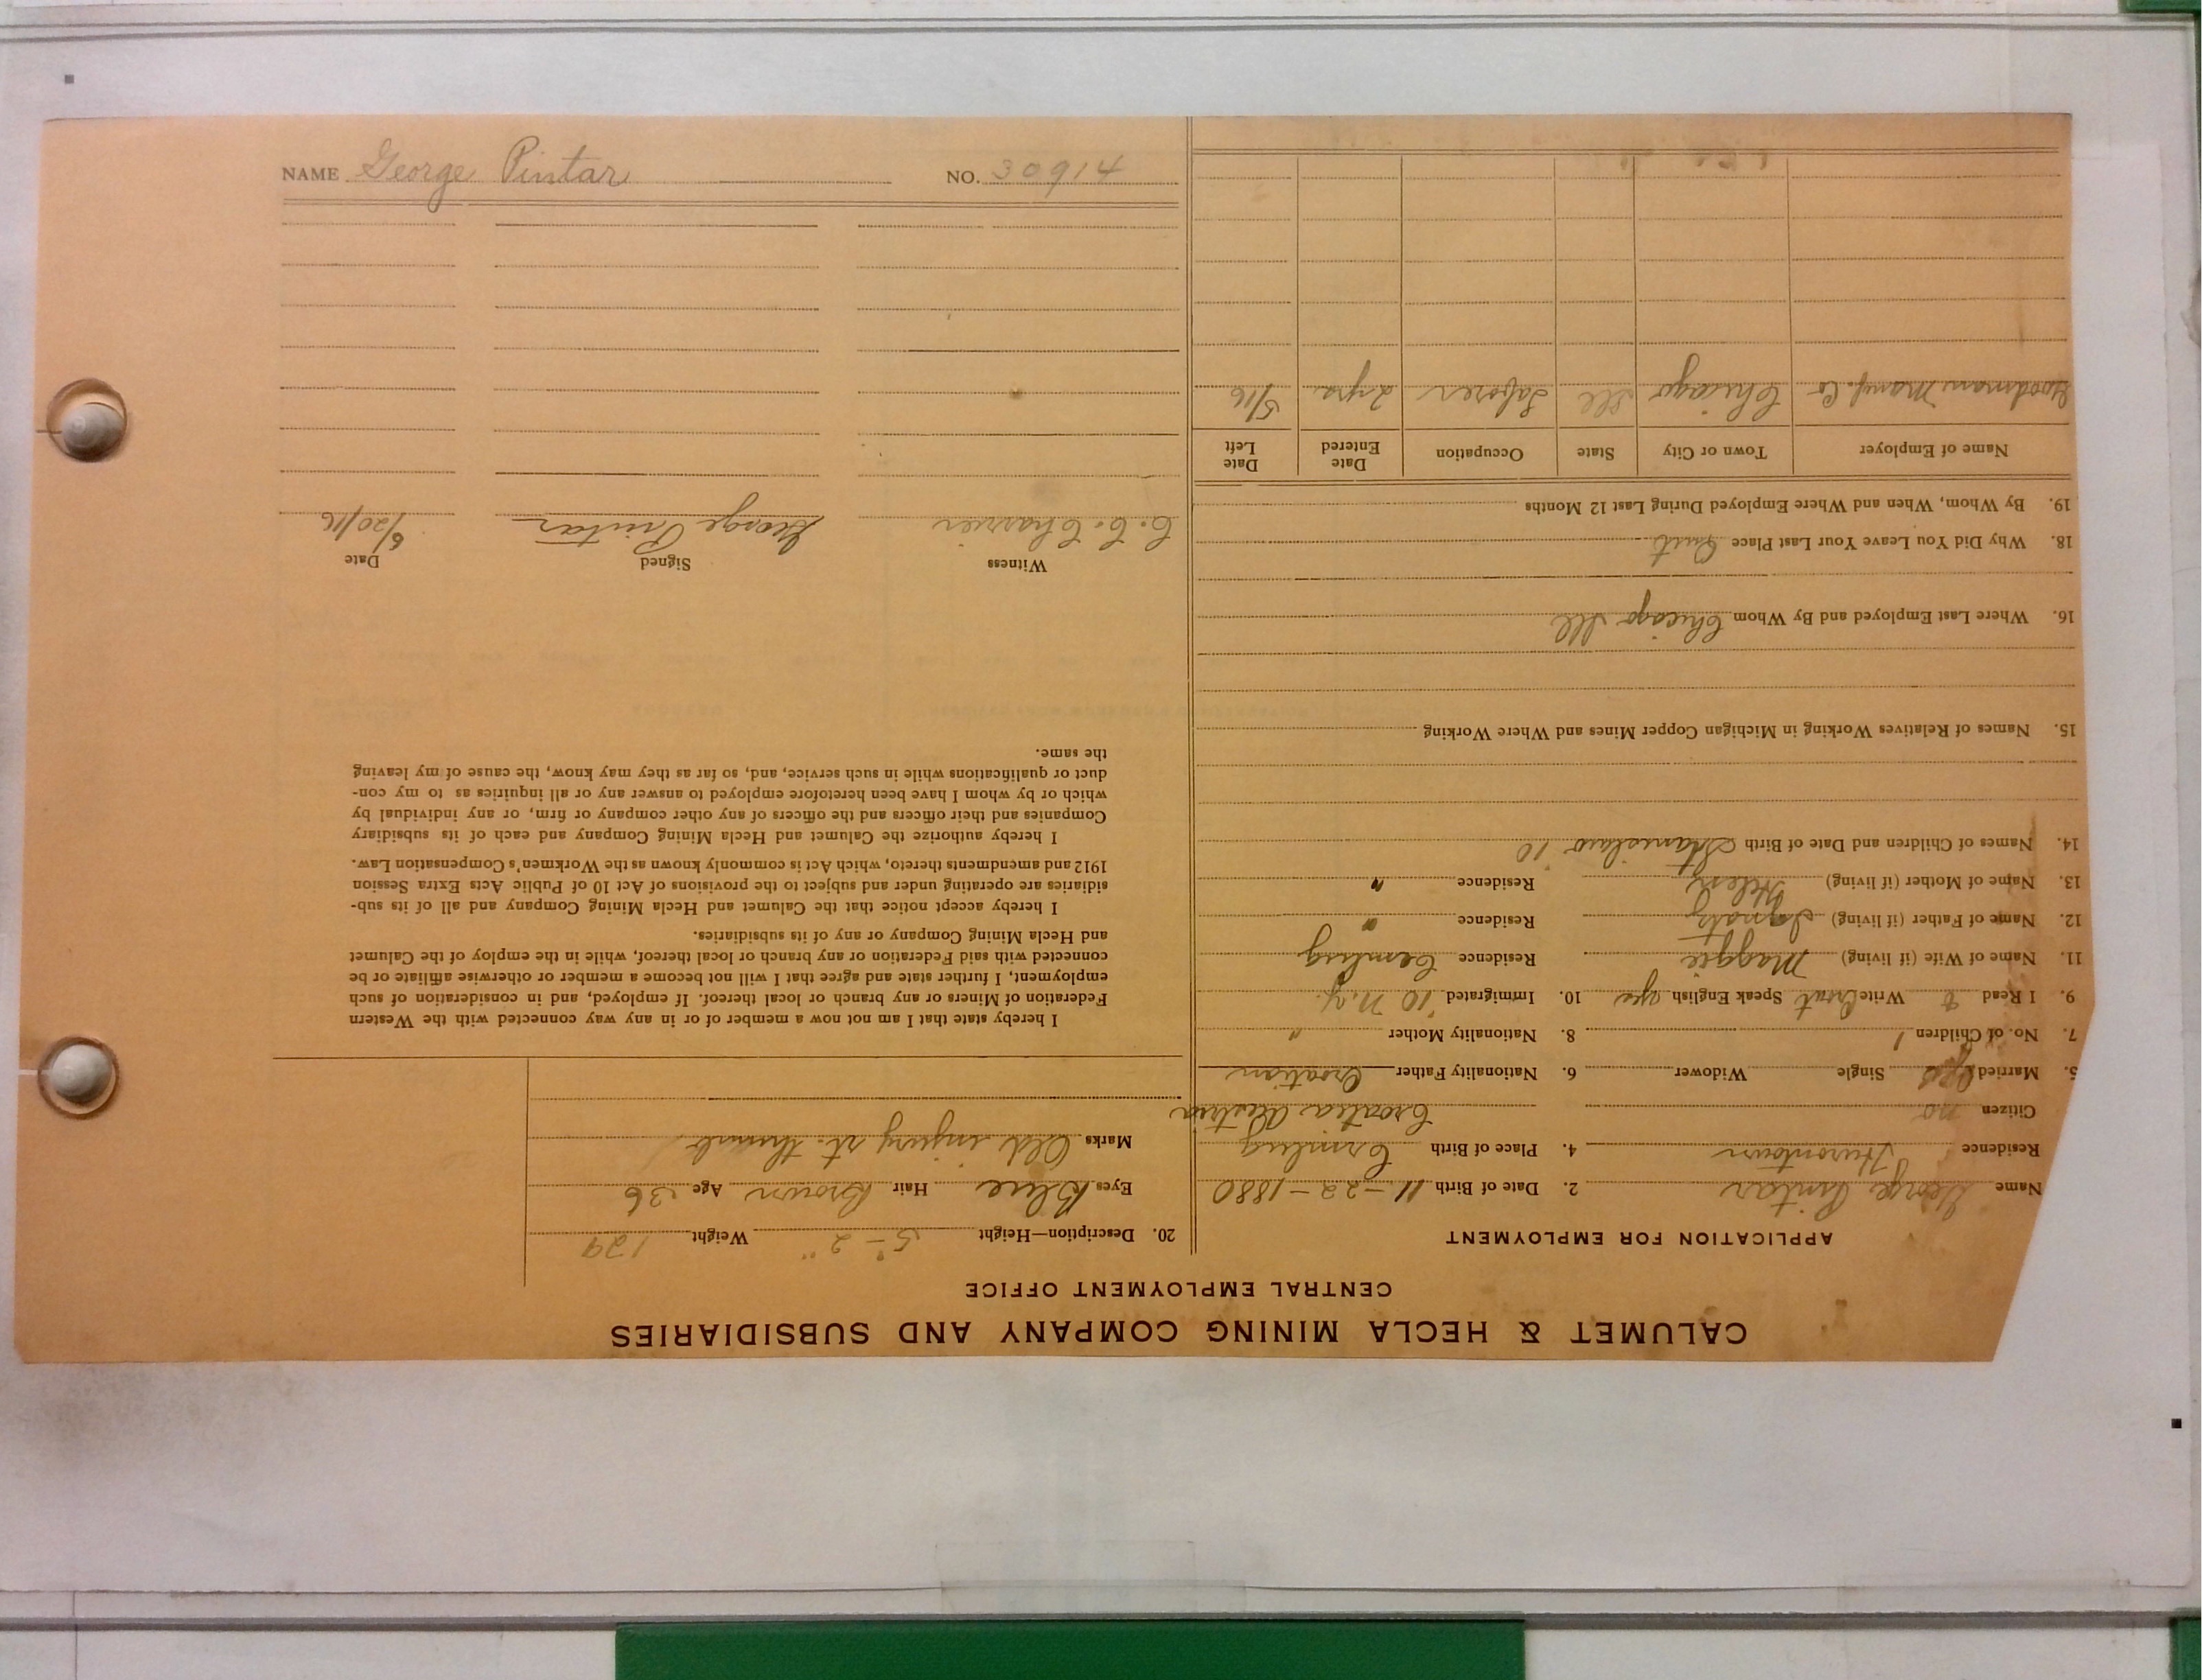 NAME George Pintar NO. 30914
CALUMET & HECLA MINING COMPANY AND SUBSIDIARIES
CENTRAL EMPLOYMENT OFFICE
APPLICATION FOR EMPLOYMENT
Name George Pintar 2. Date of Birth 11-22-1880
Residence Hurontown 4. Place of Birth
Citizen no Croatia Austria
5. Married yes Single Widower 6. Nationality Father Croatian
7. No. of Children 1 8. Nationality Mother "
9. I Read & Write Croat Speak English yes 10. Immigrated '10 N.Y.
11. Name of Wife (if living) Maggie Residence
12. Name of Father (if living) Ignatz Residence "
13. Name of Mother (if living) Helen Residence "
14. Names of Children and Date of Birth Stanislaw '10
15. Names of Relatives Working in Michigan Copper Mines and Where Working
16. Where Last Employed and By Whom Chicago Ill
18. Why Did You Leave Your Last Place Quit
19. By Whom, When and Where Employed During Last 12 Months
Name of Employer Town or City State Occupation Date Entered Date Left
Goodman Manuf. Co Chicago Ill Laborer 2 yrs. 5/16
20. Description—Height 5'-2" Weight 129
Eyes Blue Hair Brown Age 36
Marks Old injury rt. thumb
I hereby state that I am not now a member of or in any way connected with the Western
Federation of Miners or any branch or local thereof. If employed, and in consideration of such
employment, I further state and agree that I will not become a member or otherwise affiliate or be
connected with said Federation or any branch or local thereof, while in the employ of the Calumet
and Hecla Mining Company or any of its subsidiaries.
I hereby accept notice that the Calumet and Hecla Mining Company and all of its sub-
sidiaries are operating under and subject to the provisions of Act 10 of Public Acts Extra Session
1912 and amendments thereto, which Act is commonly known as the Workmen's Compensation Law.
I hereby authorize the Calumet and Hecla Mining Company and each of its subsidiary
Companies and their officers and the officers of any other company or firm, or any individual by
which or by whom I have been heretofore employed to answer any or all inquiries as to my con-
duct or qualifications while in such service, and, so far as they may know, the cause of my leaving
the same.
Witness Signed Date
C. C. Charrier George Pintar 6/20/16